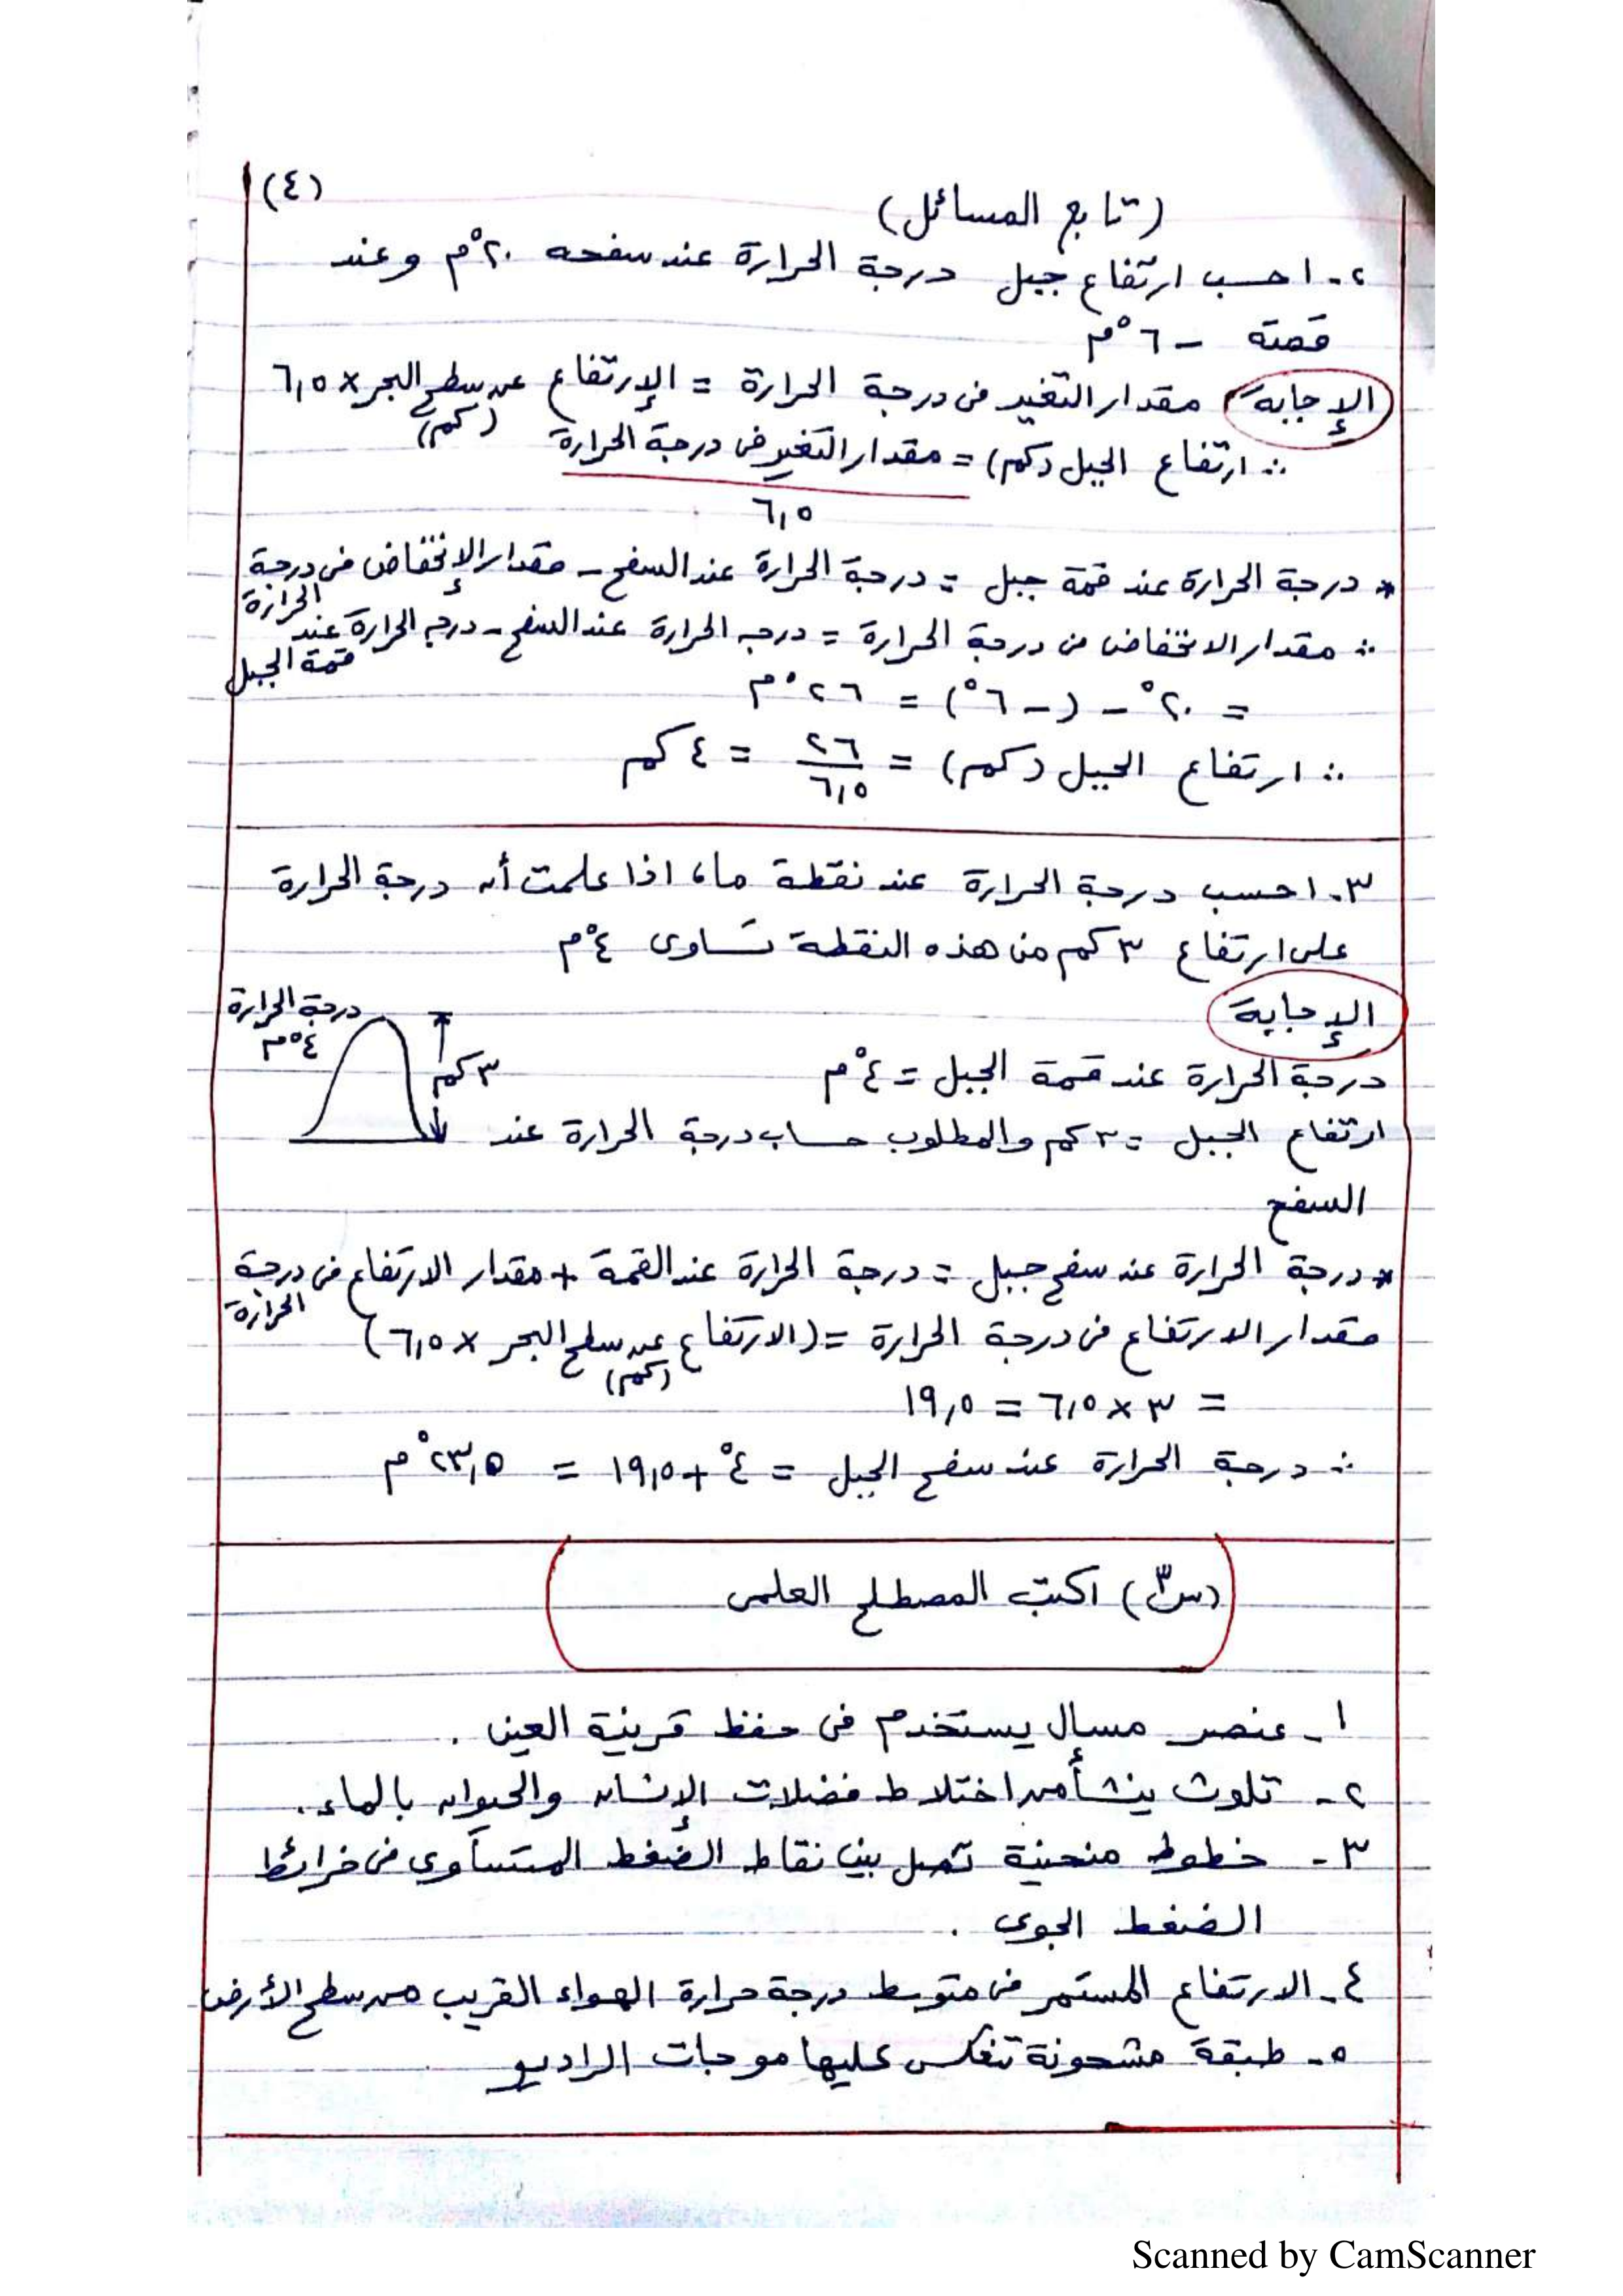 (٤)
(تابع المسائل)
٢- احسب ارتفاع جبل درجة الحرارة عند سفحه ٢٠°م وعند
قمته -٦°م
الإجابة مقدار التغير فى درجة الحرارة = الإرتفاع عن سطح البحر × ٦,٥
(كم)
∴ ارتفاع الجبل (كم) = مقدار التغير فى درجة الحرارة
٦,٥
* درجة الحرارة عند قمة جبل = درجة الحرارة عند السفح - مقدار الإنخفاض فى درجة
الحرارة
∴ مقدار الانخفاض فى درجة الحرارة = درجه الحرارة عند السفح - درجه الحرارة عند
قمة الجبل
= ٢٠° - (-٦°) = ٢٦°م
∴ ارتفاع الجبل (كم) = ٢٦/٦,٥ = ٤ كم
٣- احسب درجة الحرارة عند نقطة ما، اذا علمت أن درجة الحرارة
على ارتفاع ٣ كم من هذه النقطة تساوى ٤°م
الإجابة
درجة الحرارة
٤°م
٣ كم
درجة الحرارة عند قمة الجبل = ٤°م
ارتفاع الجبل = ٣ كم والمطلوب حساب درجة الحرارة عند
السفح
* درجة الحرارة عند سفح جبل = درجة الحرارة عند القمة + مقدار الارتفاع فى درجة
الحرارة
مقدار الارتفاع فى درجة الحرارة = (الارتفاع عن سطح البحر × ٦,٥)
(كم)
= ٣ × ٦,٥ = ١٩,٥
∴ درجة الحرارة عند سفح الجبل = ٤° + ١٩,٥ = ٢٣,٥°م
(س٣) اكتب المصطلح العلمى
١- عنصر مسال يستخدم فى حفظ قرينة العين .
٢- تلوث ينشأ من اختلاط فضلات الإنسان والحيوان بالماء.
٣- خطوط منحنية تصل بين نقاط الضغط المتساوى فى خرائط
الضغط الجوى .
٤- الارتفاع المستمر فى متوسط درجة حرارة الهواء القريب من سطح الأرض
٥- طبقة مشحونة تنعكس عليها موجات الراديو
Scanned by CamScanner